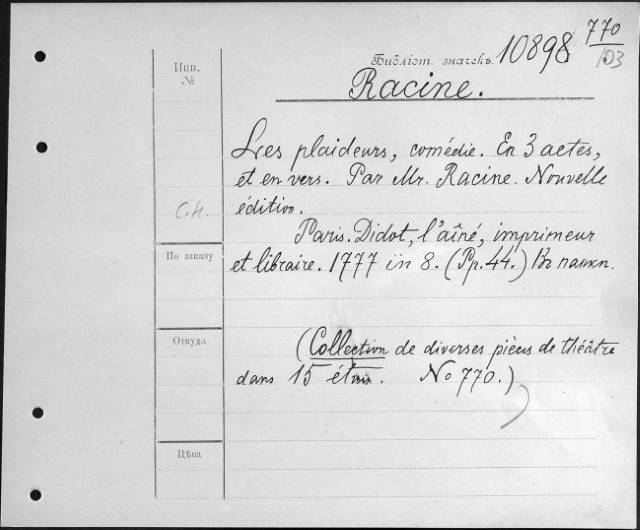 770
Библіот. значекъ. 10898 103
Инв. №
Racine.
Les plaideurs, comédie. En 3 actes,
et en vers. Par Mr. Racine. Nouvelle
édition.
С.Н.
Paris. Didot, l'aîné, imprimeur
По заказу
et libraire. 1777 in 8. (Pp. 44.) Въ папкѣ.
Откуда
(Collection de diverses pièces de théâtre
dans 15 étuis. No 770.)
Цѣна